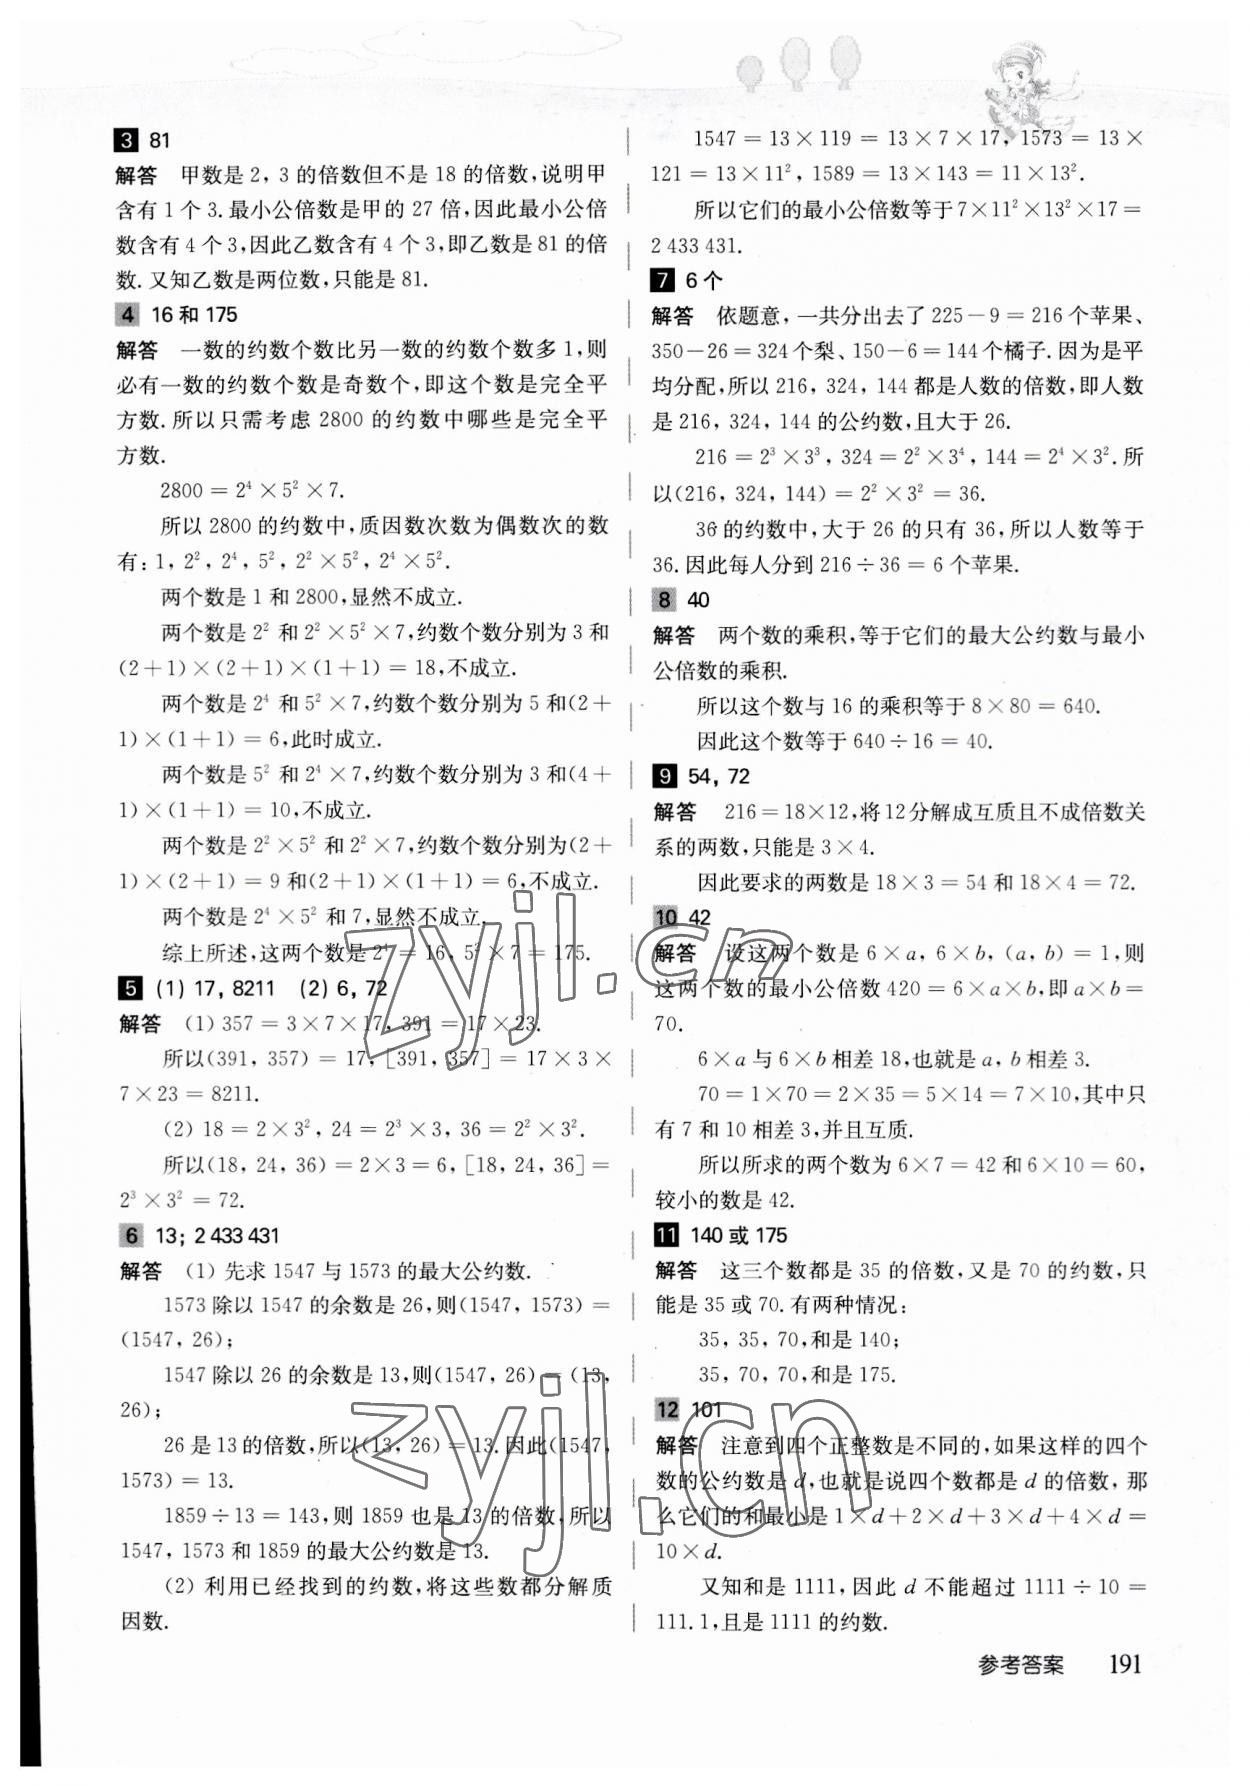 3 81
解答 甲数是 2, 3 的倍数但不是 18 的倍数,说明甲
含有 1 个 3. 最小公倍数是甲的 27 倍,因此最小公倍
数含有 4 个 3,因此乙数含有 4 个 3,即乙数是 81 的倍
数. 又知乙数是两位数,只能是 81.
4 16 和 175
解答 一数的约数个数比另一数的约数个数多 1,则
必有一数的约数个数是奇数个,即这个数是完全平
方数. 所以只需考虑 2800 的约数中哪些是完全平
方数.
2800 = 2⁴ × 5² × 7.
所以 2800 的约数中,质因数次数为偶数次的数
有: 1, 2², 2⁴, 5², 2² × 5², 2⁴ × 5².
两个数是 1 和 2800,显然不成立.
两个数是 2² 和 2² × 5² × 7,约数个数分别为 3 和
(2+1) × (2+1) × (1+1) = 18,不成立.
两个数是 2⁴ 和 5² × 7,约数个数分别为 5 和(2+
1) × (1+1) = 6,此时成立.
两个数是 5² 和 2⁴ × 7,约数个数分别为 3 和(4+
1) × (1+1) = 10,不成立.
两个数是 2² × 5² 和 2² × 7,约数个数分别为(2+
1) × (2+1) = 9 和(2+1) × (1+1) = 6,不成立.
两个数是 2⁴ × 5² 和 7,显然不成立.
综上所述,这两个数是 2⁴ = 16, 5² × 7 = 175.
5 (1) 17, 8211 (2) 6, 72
解答 (1) 357 = 3 × 7 × 17, 391 = 17 × 23.
所以(391, 357) = 17, [391, 357] = 17 × 3 ×
7 × 23 = 8211.
(2) 18 = 2 × 3², 24 = 2³ × 3, 36 = 2² × 3².
所以(18, 24, 36) = 2 × 3 = 6, [18, 24, 36] =
2³ × 3² = 72.
6 13; 2 433 431
解答 (1) 先求 1547 与 1573 的最大公约数.
1573 除以 1547 的余数是 26,则(1547, 1573) =
(1547, 26);
1547 除以 26 的余数是 13,则(1547, 26) = (13,
26);
26 是 13 的倍数,所以(13, 26) = 13. 因此(1547,
1573) = 13.
1859 ÷ 13 = 143,则 1859 也是 13 的倍数,所以
1547, 1573 和 1859 的最大公约数是 13.
(2) 利用已经找到的约数,将这些数都分解质
因数.
1547 = 13 × 119 = 13 × 7 × 17, 1573 = 13 ×
121 = 13 × 11², 1589 = 13 × 143 = 11 × 13².
所以它们的最小公倍数等于 7 × 11² × 13² × 17 =
2 433 431.
7 6 个
解答 依题意,一共分出去了 225 - 9 = 216 个苹果、
350 - 26 = 324 个梨、150 - 6 = 144 个橘子. 因为是平
均分配,所以 216, 324, 144 都是人数的倍数,即人数
是 216, 324, 144 的公约数,且大于 26.
216 = 2³ × 3³, 324 = 2² × 3⁴, 144 = 2⁴ × 3². 所
以(216, 324, 144) = 2² × 3² = 36.
36 的约数中,大于 26 的只有 36,所以人数等于
36. 因此每人分到 216 ÷ 36 = 6 个苹果.
8 40
解答 两个数的乘积,等于它们的最大公约数与最小
公倍数的乘积.
所以这个数与 16 的乘积等于 8 × 80 = 640.
因此这个数等于 640 ÷ 16 = 40.
9 54, 72
解答 216 = 18 × 12,将 12 分解成互质且不成倍数关
系的两数,只能是 3 × 4.
因此要求的两数是 18 × 3 = 54 和 18 × 4 = 72.
10 42
解答 设这两个数是 6 × a, 6 × b, (a, b) = 1,则
这两个数的最小公倍数 420 = 6 × a × b,即 a × b =
70.
6 × a 与 6 × b 相差 18,也就是 a, b 相差 3.
70 = 1 × 70 = 2 × 35 = 5 × 14 = 7 × 10,其中只
有 7 和 10 相差 3,并且互质.
所以所求的两个数为 6 × 7 = 42 和 6 × 10 = 60,
较小的数是 42.
11 140 或 175
解答 这三个数都是 35 的倍数,又是 70 的约数,只
能是 35 或 70. 有两种情况:
35, 35, 70,和是 140;
35, 70, 70,和是 175.
12 101
解答 注意到四个正整数是不同的,如果这样的四个
数的公约数是 d,也就是说四个数都是 d 的倍数, 那
么它们的和最小是 1 × d + 2 × d + 3 × d + 4 × d =
10 × d.
又知和是 1111,因此 d 不能超过 1111 ÷ 10 =
111.1,且是 1111 的约数.
参考答案 191
zyjl.cn
zyjl.cn